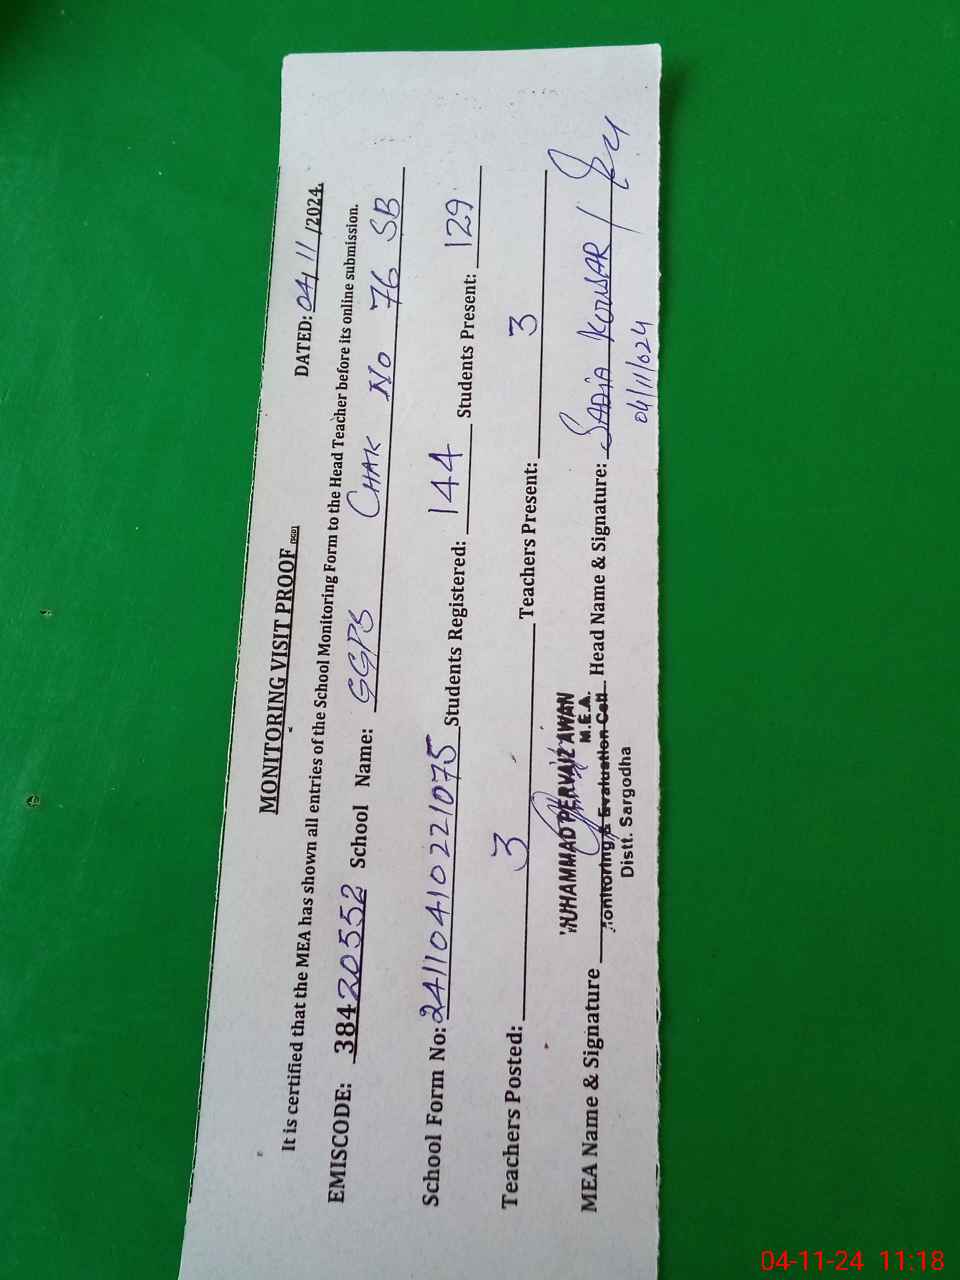 MONITORING VISIT PROOF
DATED: 04/11/2024.
It is certified that the MEA has shown all entries of the School Monitoring Form to the Head Teacher before its online submission.
EMISCODE: 38420552 School Name: GGPS CHAK No 76 SB
School Form No: 24110410221075 Students Registered: 144 Students Present: 129
Teachers Posted: 3 Teachers Present: 3
MUHAMMAD PERVAIZ AWAN
M.E.A.
MEA Name & Signature Monitoring & Evaluation Cell Head Name & Signature: SADIA KOUSAR /
Distt. Sargodha
04/11/024
04-11-24 11:18